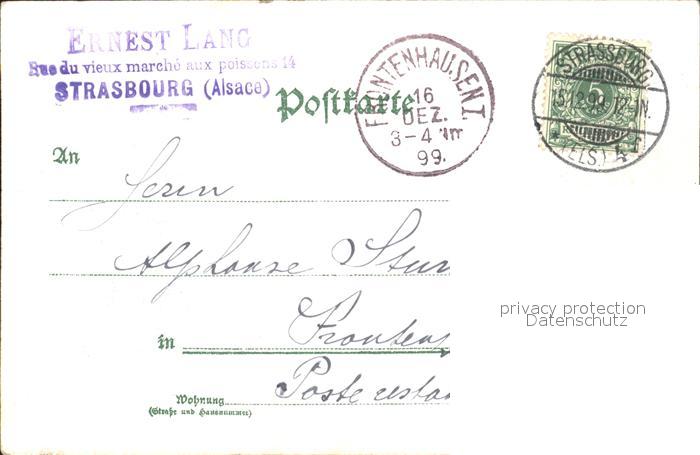 ERNEST LANG
Rue du vieux marché aux poissons 14
STRASBOURG (Alsace)
Postkarte
FRONTENHAUSEN I.
16
DEZ.
3-4 Nm
99.
STRASSBURG
15.12.99. 12-1N.
* (ELS.) 4 f
An
Herrn
Alphonse Stur
in Fronten
Poste resta
Wohnung
(Straße und Hausnummer)
privacy protection
Datenschutz